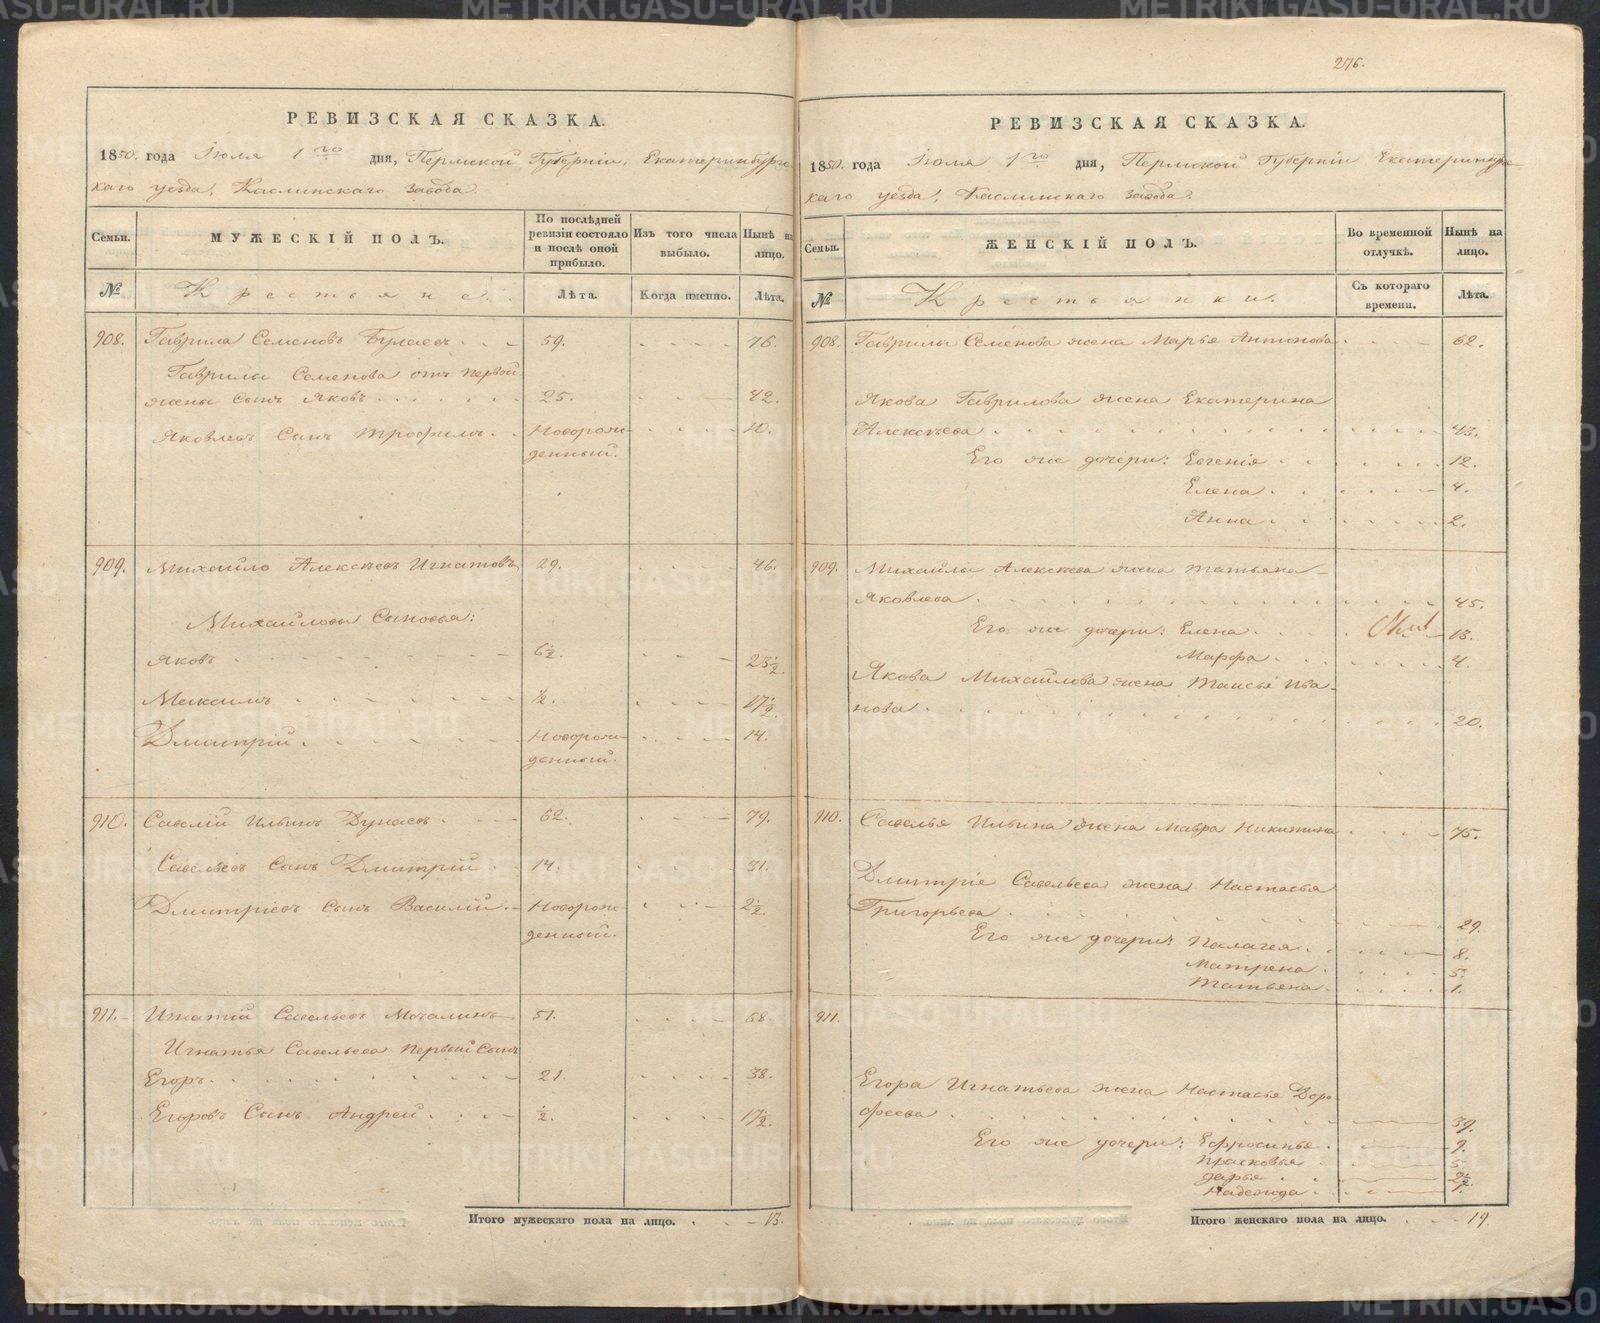 276.
РЕВИЗСКАЯ СКАЗКА.
1850. года Іюля 1го дня, Пермской Губерніи, Екатеринбургс-
каго уезда, Каслинскаго завода.
Семьи.
МУЖЕСКІЙ ПОЛЪ.
По послѣдней ревизіи состояло и послѣ оной прибыло.
Изъ того числа выбыло.
Нынѣ на лицо.
№
Крестьяне.
Лѣта.
Когда именно.
Лѣта.
908. Гаврила Семеновъ Булаевъ 59. 76.
Гаврилы Семенова отъ первой
жены сынъ Яковъ 25. 42.
Яковлевъ сынъ Трофимъ Новорож- 10.
денный.
909. Михайло Алексѣевъ Игнатовъ 29. 46.
Михайловы сыновья:
Яковъ 6½. 23½.
Максимъ ½. 17½.
Дмитрій Новорож- 14.
денный.
910. Савелій Ильинъ Дунаевъ 62. 79.
Савельевъ сынъ Дмитрій 14. 31.
Дмитріевъ сынъ Василій Новорож- 2½.
денный.
911. Игнатій Савельевъ Мочалинъ 51. 68.
Игнатья Савельева первый сынъ
Егоръ 21. 38.
Егоровъ сынъ Андрей ½. 17½.
Итого мужескаго пола на лицо. 13.
РЕВИЗСКАЯ СКАЗКА.
1850. года Іюля 1го дня, Пермской Губерніи Екатеринбургс-
каго уезда, Каслинскаго завода.
Семьи.
ЖЕНСКІЙ ПОЛЪ.
Во временной отлучкѣ.
Нынѣ на лицо.
№
Крестьянки.
Съ котораго времени.
Лѣта.
908. Гаврилы Семенова жена Марья Антонова 62.
Якова Гаврилова жена Екатерина
Алексѣева 43.
Его же дочери: Евгенія 12.
Елена 4.
Анна 2.
909. Михайлы Алексѣева жена Татьяна
Яковлева 45.
Его же дочери: Елена 13.
Марфа 4.
Якова Михайлова жена Таисья Ива-
нова 20.
910. Савелья Ильина жена Мавра Никитина 75.
Дмитріе Савельева жена Настасья
Григорьева 29.
Его же дочери: Палагея 8.
Матрена 5.
Татьяна 1.
911.
Егора Игнатьева жена Настасья Доро-
феева 39.
Его же дочери: Ефросинья 9.
Прасковья 5.
Дарья 2½.
Надежда 1.
Итого женскаго пола на лицо. 19.
METRIKI.GASO-URAL.RU